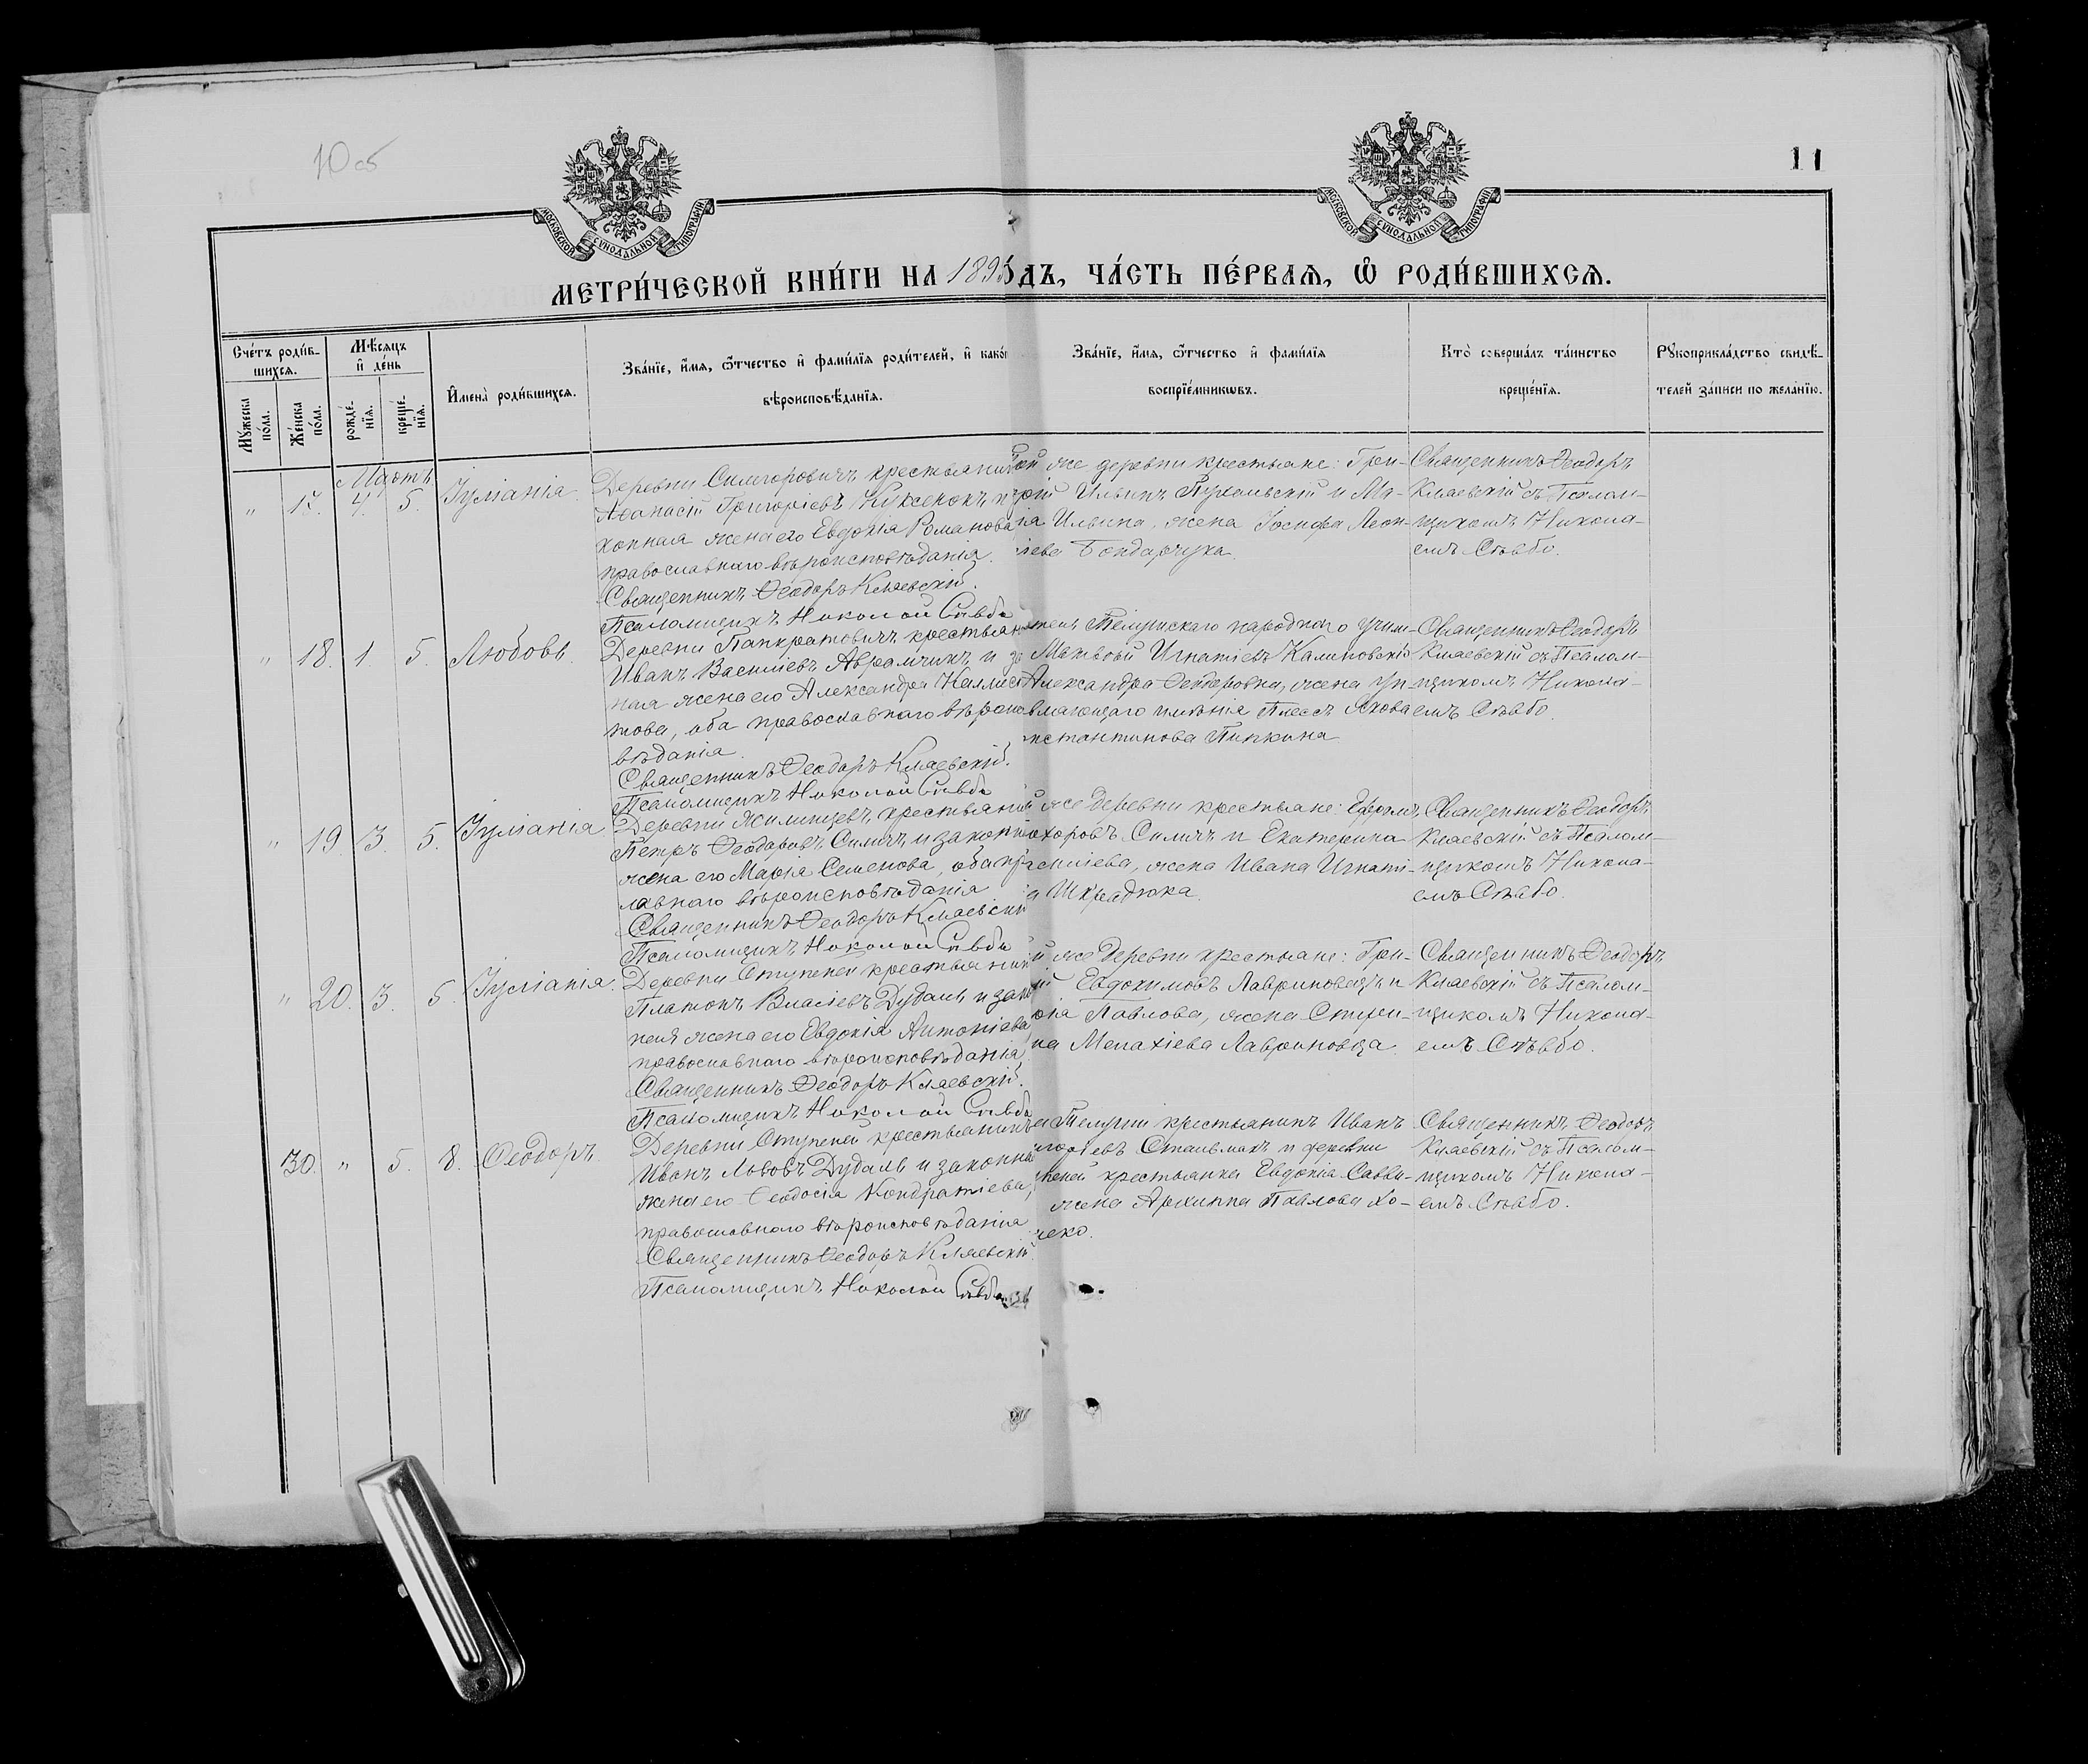 10 об
11
МОСКОВСКОЙ СѴНОДАЛЬНОЙ ТИПОГРАФІИ
МОСКОВСКОЙ СѴНОДАЛЬНОЙ ТИПОГРАФІИ
МЕТРИ́ЧЕСКОЙ КНИ́ГИ НА 1895 ДЪ, ЧА́СТЬ ПЕ́РВАЯ, Ѡ РОДИ́ВШИХСЯ.
Сче́тъ роди́в-
шихся.
Мꙋ́жеска
по́ла.
Же́нска
по́ла.
Мѣ́сяцъ
и де́нь
рожде́-
нїя.
креще́-
нїя.
И҆мена̀ роди́вшихся.
Зва́нїе, и҆́мя, ѻ҆́тчество и҆ фами́лїя роди́телей, и҆ како́
вѣроисповѣ́данїя.
Зва́нїе, и҆́мя, ѻ҆́тчество и҆ фами́лїя
воспрїе́мникѡвъ.
Кто̀ соверша́лъ та́инство
креще́нїя.
Рꙋкоприкла́дство свидѣ́-
телей за́писи по жела́нїю.
Мартъ
" 17. 4. 5. Іуліанія.
Деревни Симгоровичъ крестьянин
Аѳанасій Григоріевъ Куксенокъ и
конная жена его Евдокія Романова
православнаго вѣроисповѣданія.
Священникъ Ѳеодоръ Кляевскій.
Псаломщикъ Николай Сѣвбо
же деревни крестьяне: Гри-
Ильинъ и Ма-
Ильина, жена Іосифа Леон-
Бондарчука.
Священникъ Ѳеодоръ
Кляевскій съ Псалом-
щикомъ Никола-
емъ Сѣвбо.
" 18. 1. 5. Любовь.
Деревни Панкратовичъ крестьян
Иванъ Василіевъ Аврамчикъ и за
ная жена его Александра Каллис
това, оба православнаго вѣроиспо
вѣданія.
Священникъ Ѳеодоръ Кляевскій.
Псаломщикъ Николай Сѣвбо
народнаго учил-
Матвѣй Игнатіевъ Калиновскій
Александра Ѳеодоровна, жена уп-
вляющаго имѣнія Плессъ Якова
нстантинова Пипкина
Священникъ Ѳеодоръ
Кляевскій съ Псалом-
щикомъ Никола-
емъ Сѣвбо.
" 19. 3. 5. Іуліанія
Деревни Жилинцевъ крестьянин
Петръ Ѳеодоровъ Силичъ и законн
жена его Марія Семенова, оба пр
лавнаго вѣроисповѣданія
Священникъ Ѳеодоръ Кляевскій
Псаломщикъ Николай Сѣвбо
й же деревни крестьяне: Ефремъ
охоровъ Силичъ и Екатерина
силіева, жена Ивана Игнати-
а Шкредюка.
Священникъ Ѳеодоръ
Кляевскій съ Псалом-
щикомъ Никола-
емъ Сѣвбо.
" 20. 3. 5. Іуліанія.
Деревни Ступеней крестьянин
Платонъ Власіевъ Дудаль и закон
ная жена его Евдокія Антоніева,
православнаго вѣроисповѣданія
Священникъ Ѳеодоръ Кляевскій.
Псаломщикъ Николай Сѣвбо
й же деревни крестьяне: Гри-
ій Евдокимовъ Лавриновецъ и
Павлова, жена Стефа-
на Мелахіева Лавриновца.
Священникъ Ѳеодоръ
Кляевскій съ Псалом-
щикомъ Никола-
емъ Сѣвбо.
30. " 5. 8. Ѳеодоръ.
Деревни Ступеней крестьянинъ
Иванъ Львовъ Дудаль и законна
жена его Ѳеодосія Кондратіева,
православнаго вѣроисповѣданія
Священникъ Ѳеодоръ Кляевскій
Псаломщикъ Николай Сѣвбо
крестьянинъ Иванъ
и деревни
пеней крестьянка Евдокія Савви-
жена Архиппа Павлова Хо-
Священникъ Ѳеодоръ
Кляевскій съ Псалом-
щикомъ Никола-
емъ Сѣвбо.